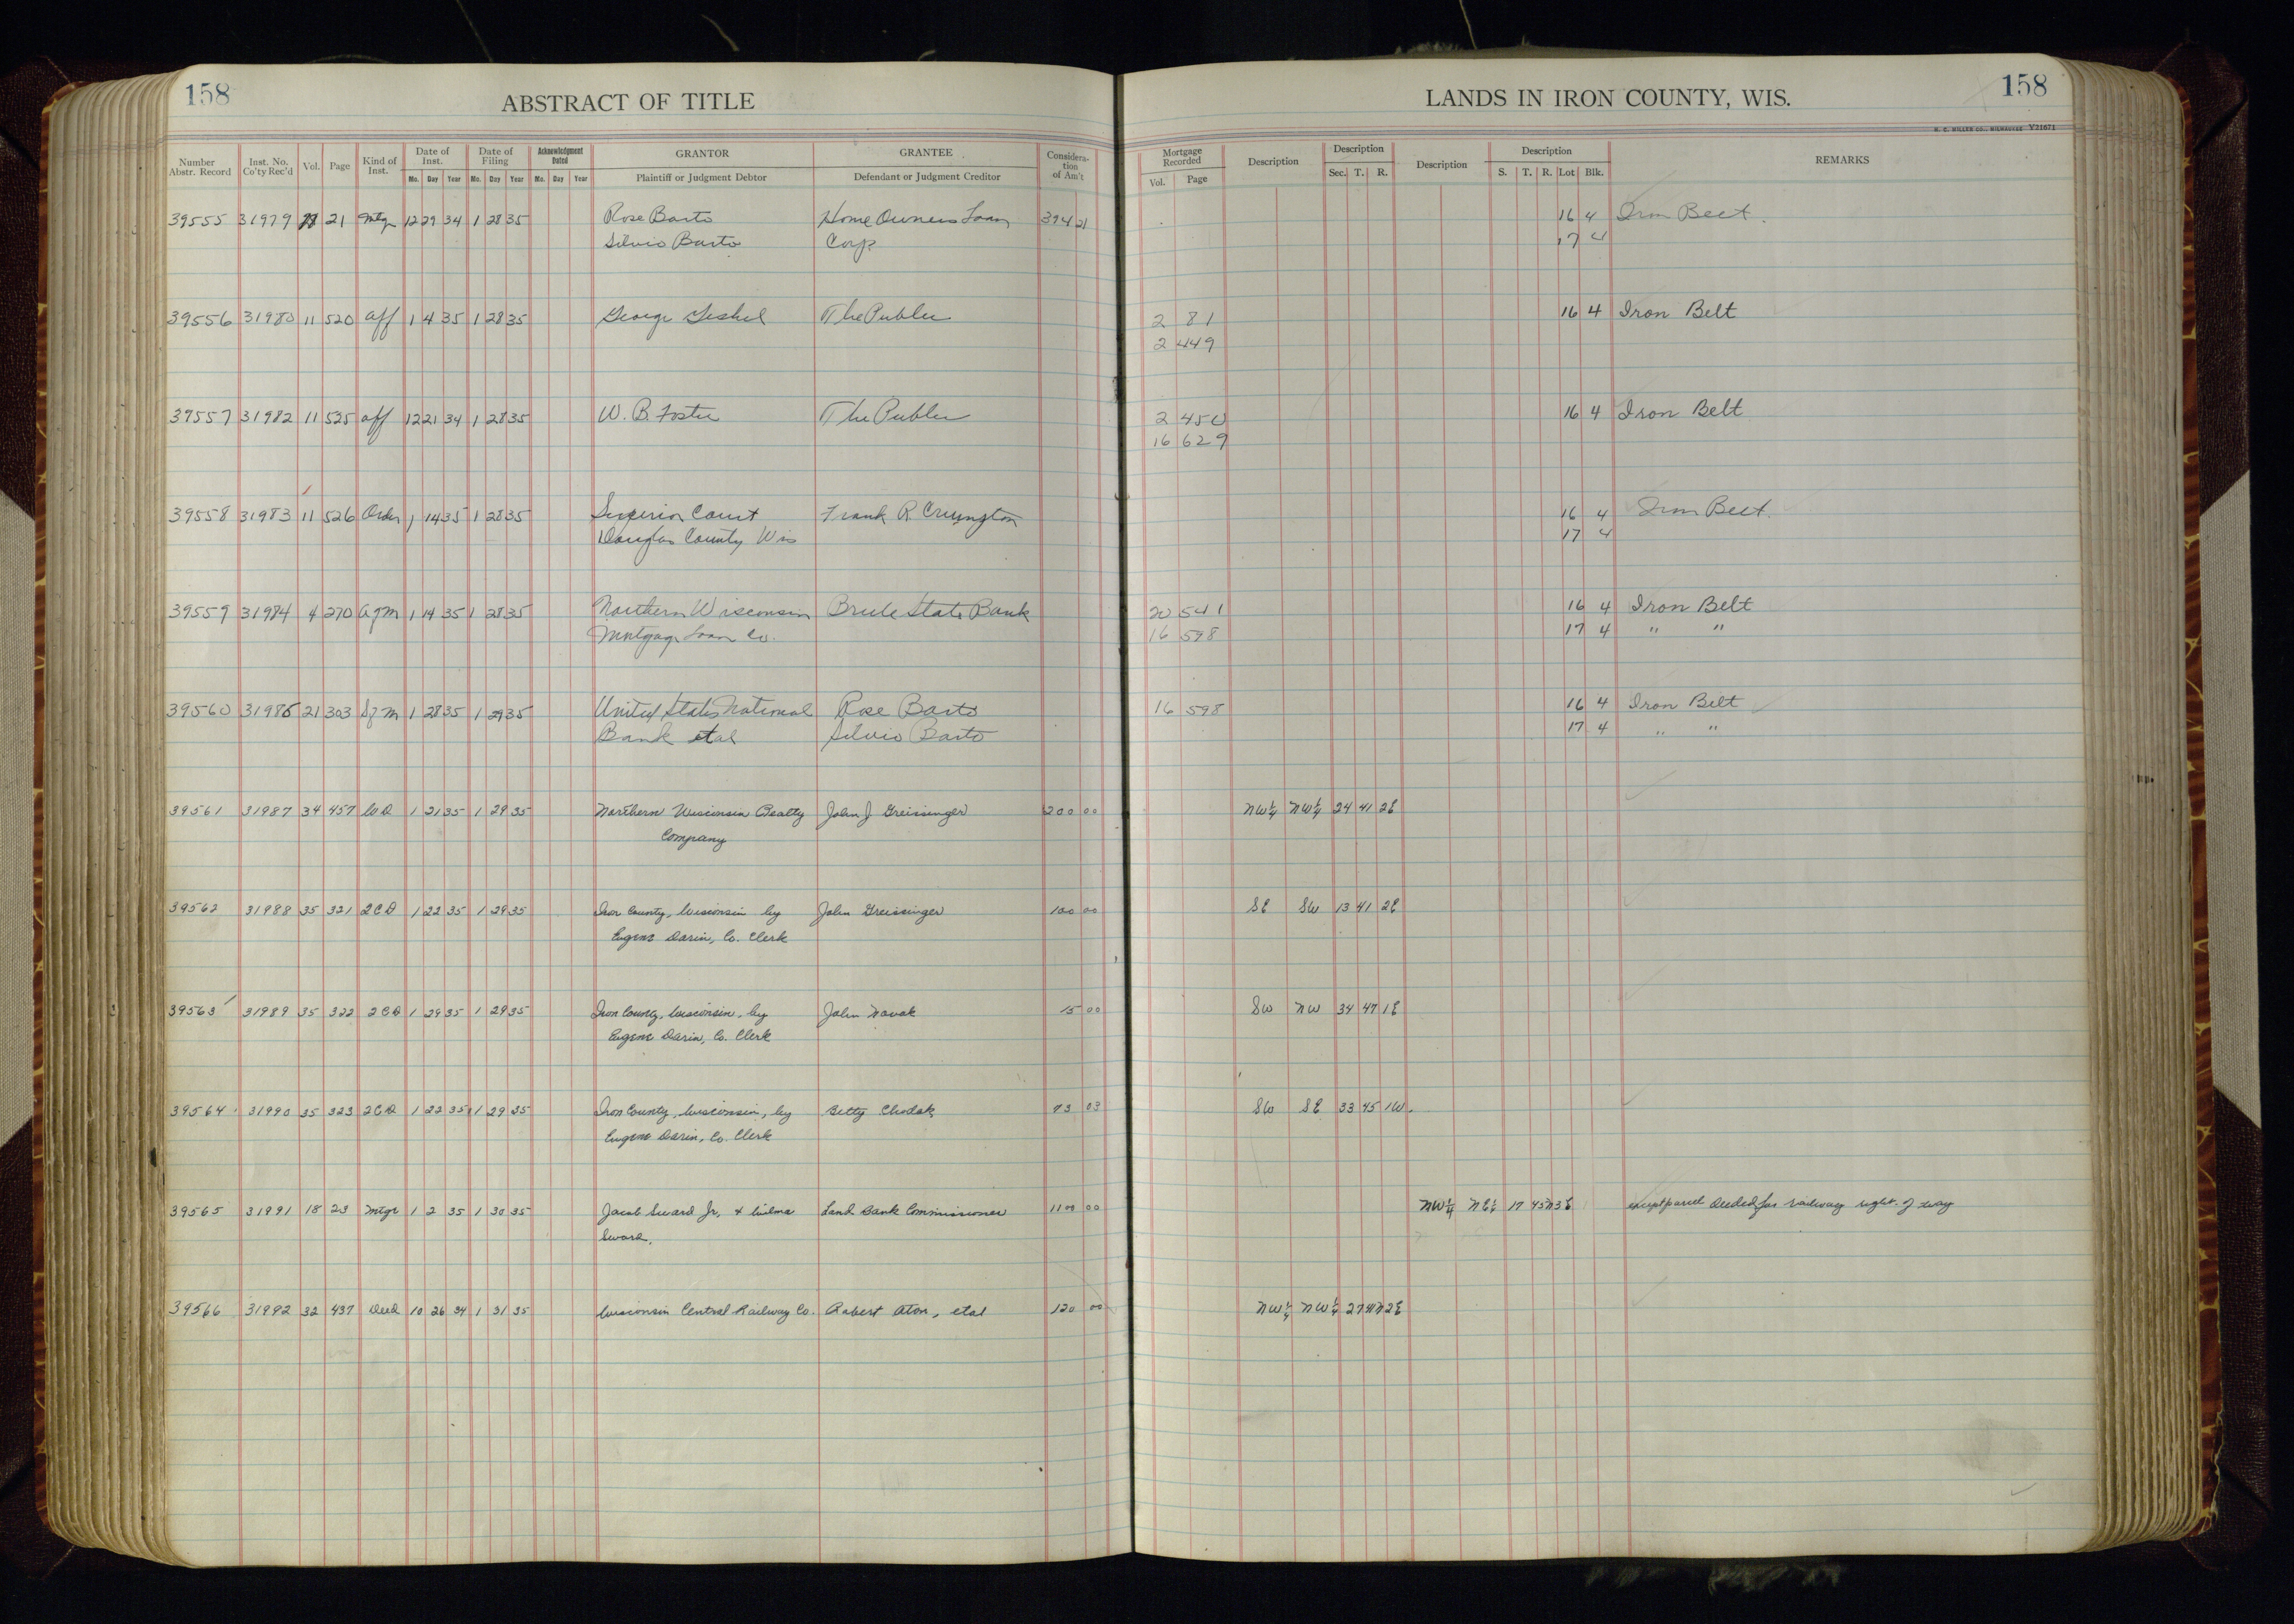 158
ABSTRACT OF TITLE
LANDS IN IRON COUNTY, WIS.
158
H. C. MILLER CO., MILWAUKEE Y21671
Number Abstr. Record Inst. No. Co'ty Rec'd Vol. Page Kind of Inst. Date of Inst. Mo. Day Year Date of Filing Mo. Day Year Acknowledgment Dated Mo. Day Year GRANTOR Plaintiff or Judgment Debtor GRANTEE Defendant or Judgment Creditor Consideration of Am't Mortgage Recorded Vol. Page Description Description Sec. T. R. Description Description S. T. R. Lot Blk. REMARKS
39555 31979 21 Mtg 12 29 34 1 28 35 Rose Barto Home Owners Loan 394 21 16 4 Iron Belt.
Silvio Barto Corp 17 4
39556 31980 11 520 aff 1 4 35 1 28 35 George The Public 2 81 16 4 Iron Belt
2 449
39557 31982 11 525 aff 12 21 34 1 28 35 W. B. Foster The Public 2 450 16 4 Iron Belt
16 629
39558 31983 11 526 Order 1 14 35 1 28 35 Superior Court Frank R. 16 4 Iron Belt.
Douglas County Wis 17 4
39559 31984 4 270 AgM 1 14 35 1 28 35 Northern Wisconsin Brule State Bank 20 541 16 4 Iron Belt
Mortgage Loan Co. 16 598 17 4 " "
39560 31985 21 303 SgM 1 28 35 1 29 35 United States National Rose Barto 16 598 16 4 Iron Belt
Bank etal Silvio Barto 17 4 " "
39561 31987 34 457 WD 1 21 35 1 29 35 Northern Wisconsin Realty John J Greissinger 200 00 NW¼ NW¼ 24 41 2E
Company
39562 31988 35 321 2CD 1 22 35 1 29 35 Iron County, Wisconsin by John Greissinger 100 00 SE SW 13 41 2E
Eugene Darin, Co. Clerk
39563 31989 35 322 2CD 1 29 35 1 29 35 Iron County, Wisconsin, by John Novak 15 00 SW NW 34 47 1E
Eugene Darin, Co. Clerk
39564 31990 35 323 2CD 1 22 35 1 29 35 Iron County, Wisconsin, by Betty Chodak 03 SW SE 33 45 1W.
Eugene Darin, Co. Clerk
39565 31991 18 23 Mtge 1 2 35 1 30 35 Jacob Sward Jr. & Wilma Land Bank Commissioner 1100 00 NW¼ NE¼ 17 45N 3E except parcel deeded for railway right of way
Sward.
39566 31992 32 437 Deed 10 26 34 1 31 35 Wisconsin Central Railway Co. Robert Aton, etal 120 00 NW¼ NW¼ 27 41N 2E